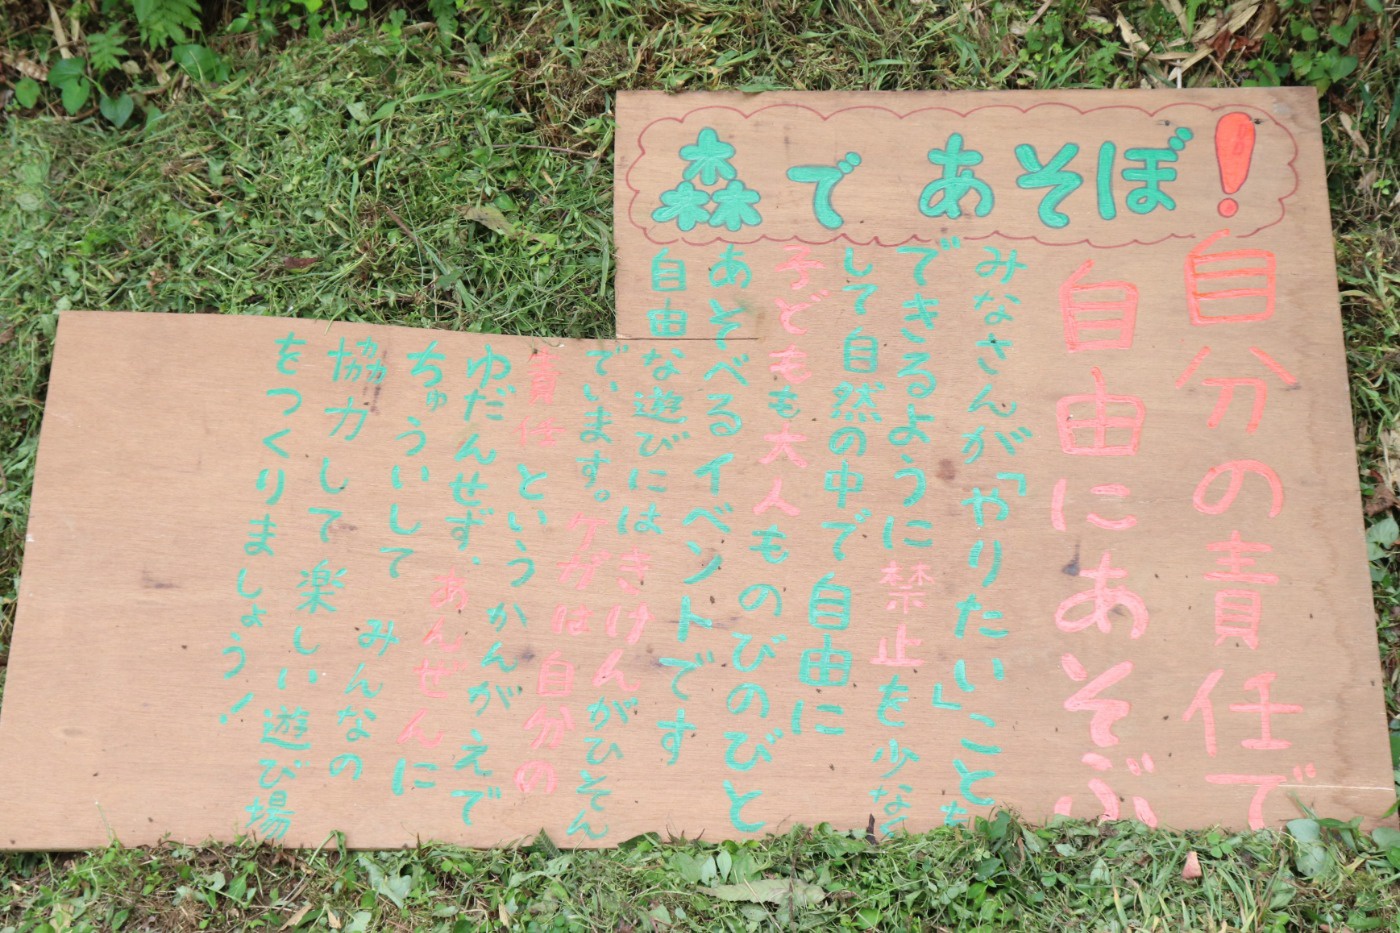 森であそぼ!
自分の責任で
自由にあそぶ
みなさんが「やりたい」ことを
できるように禁止を少なく
して自然の中で自由に
子どもも大人ものびのびと
あそべるイベントです
自由な遊びにはきけんがひそん
でいます。ケガは自分の
責任というかんがえで
ゆだんせず、あんぜんに
ちゅういして みんなの
協力して楽しい遊び場
をつくりましょう!